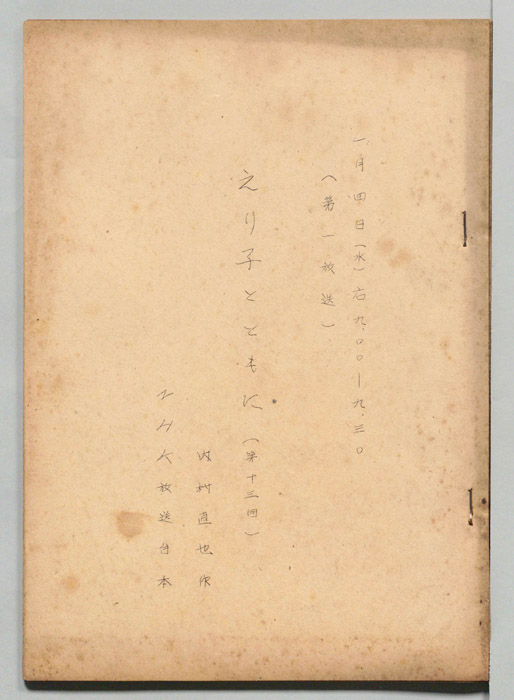 一月四日(水)右九.〇〇―九.三〇
(第一放送)
えり子とともに(第十三回)
内村直也作
NHK放送台本